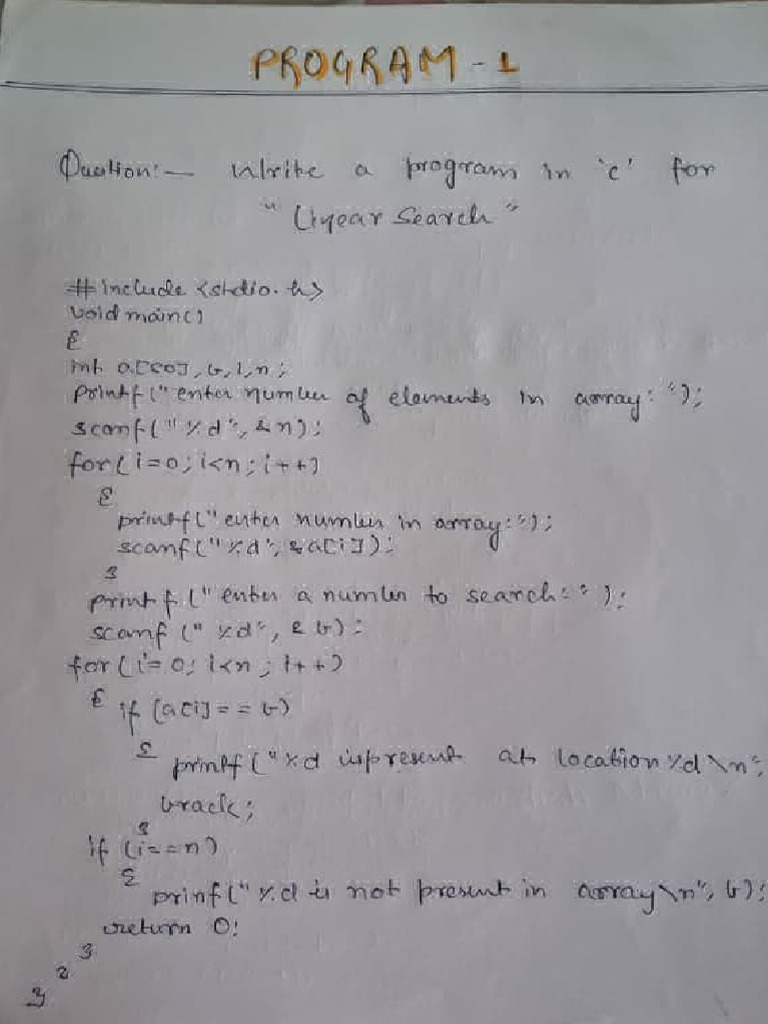 PROGRAM - 1
Question:- Write a program in 'c' for
"Linear Search"
#include <stdio.h>
void main()
{
int a[50], b, i, n;
printf("enter number of elements in array: ");
scanf("%d", &n);
for(i=0; i<n; i++)
{
printf("enter number in array:");
scanf("%d", &a[i]);
}
printf("enter a number to search: ");
scanf("%d", &b);
for(i=0; i<n; i++)
{ if (a[i]==b)
{ printf("%d is present at location %d \n",
break;
}
if (i==n)
{
prinf("%d is not present in array\n", b);
return 0;
}
}
}